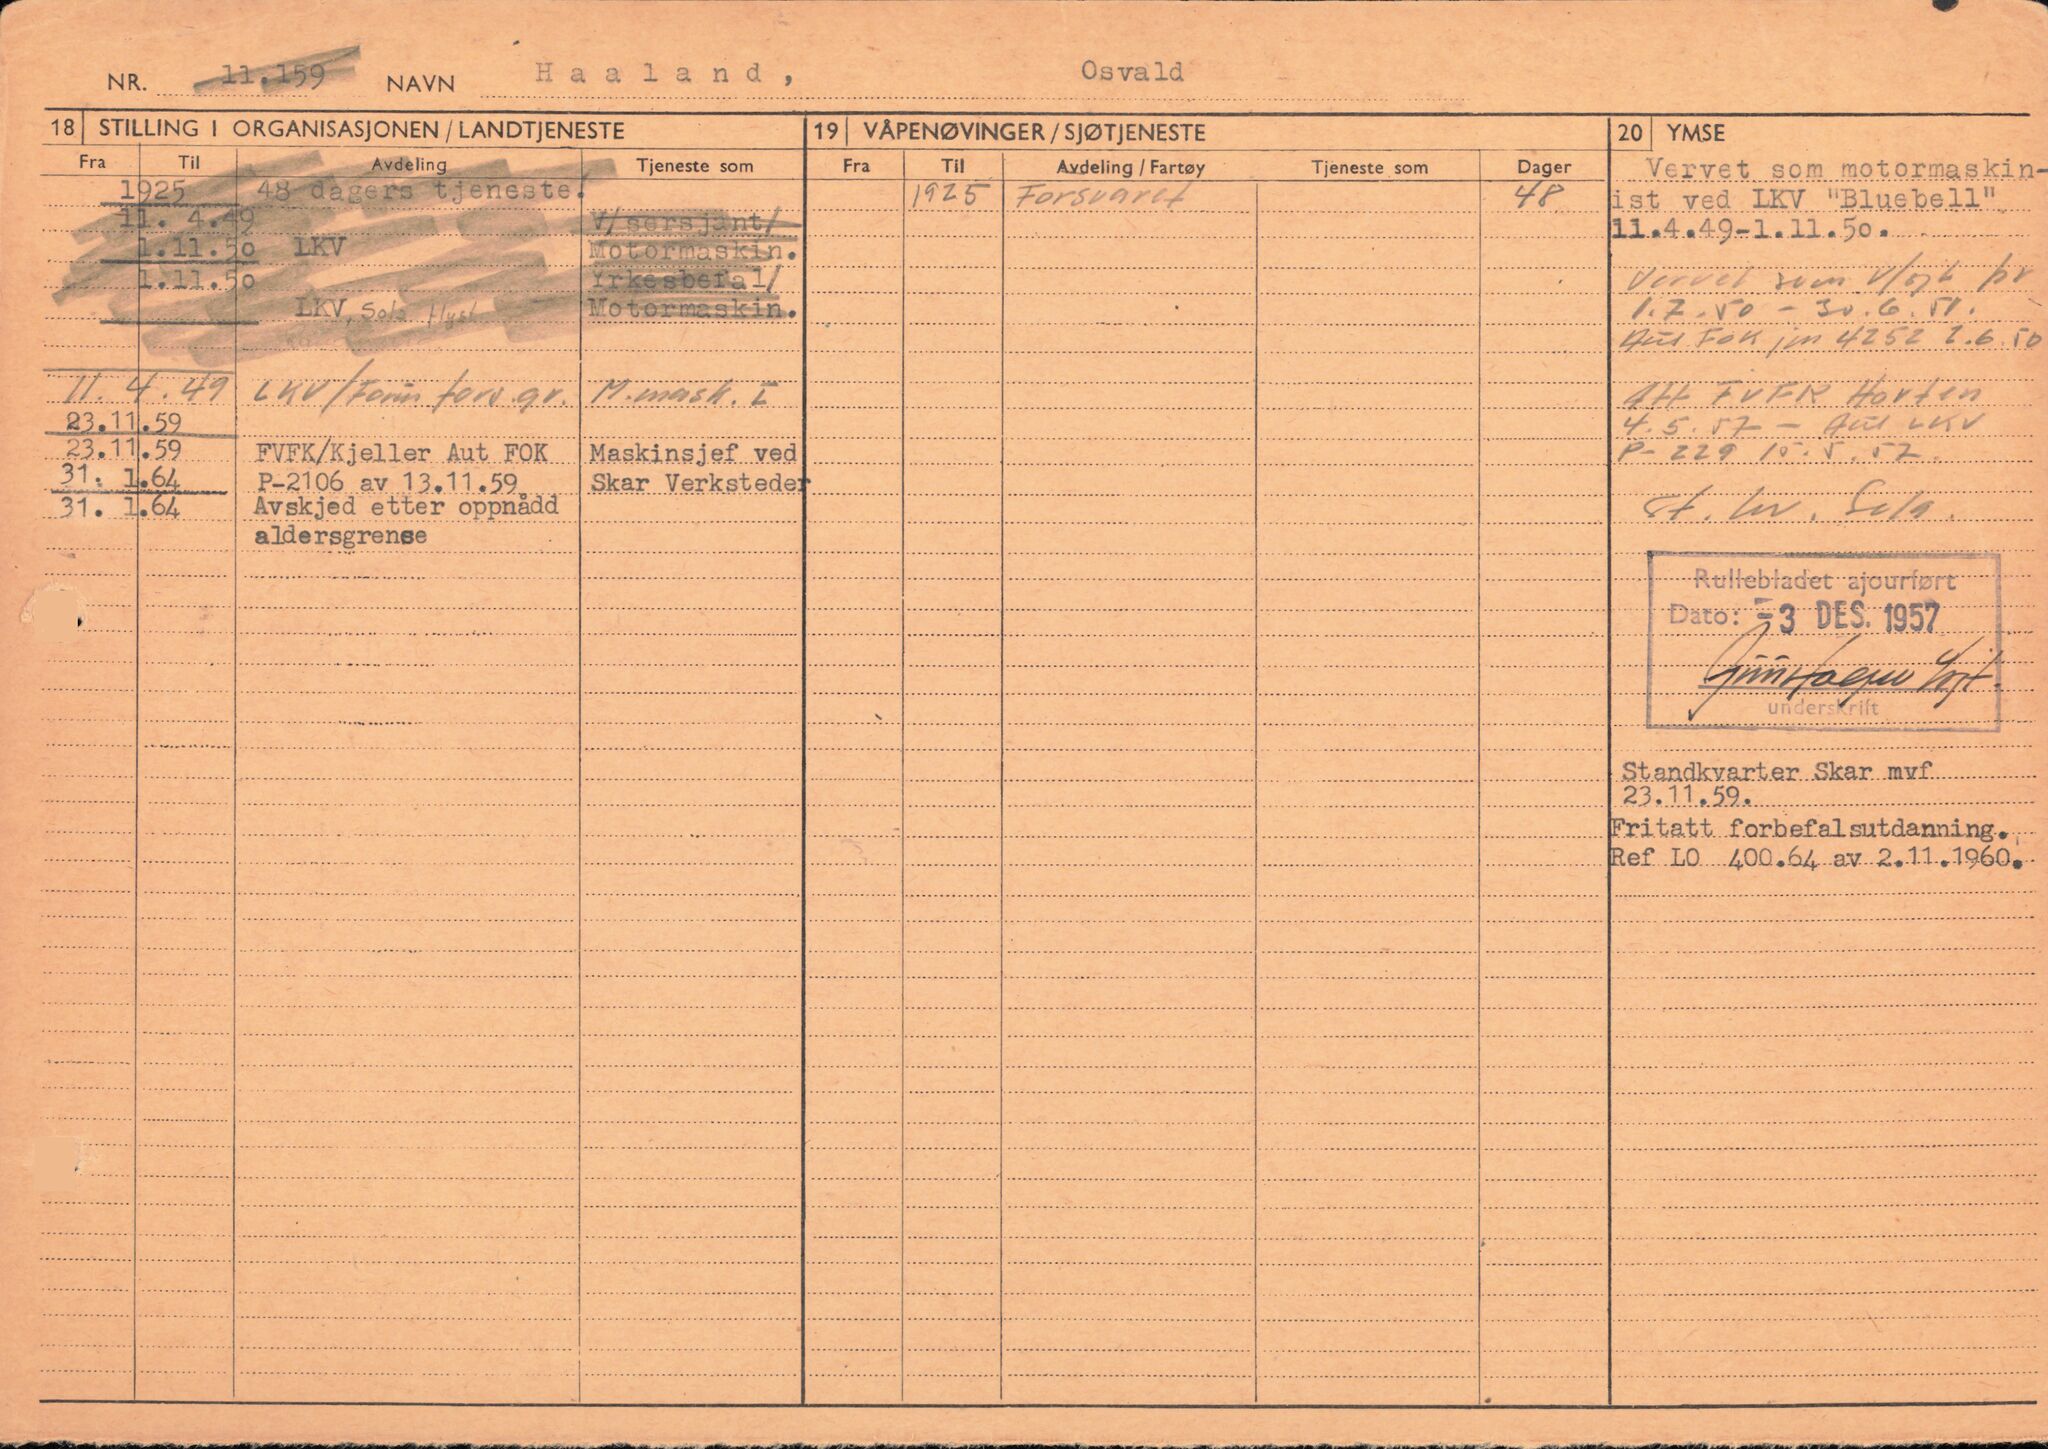 NR. 11.159 NAVN Haaland, Osvald
18 STILLING I ORGANISASJONEN/LANDTJENESTE
Fra Til Avdeling Tjeneste som
1925 48 dagers tjeneste.
11. 4.49 V/sersjant/
1.11.50 LKV Motormaskin.
1.11.50 Yrkesbefal/
LKV, Sola flyst Motormaskin.
11. 4. 49 LKV/Form fors.gr. M.mask. I
23.11.59
23.11.59 FVFK/Kjeller Aut FOK Maskinsjef ved
31. 1.64 P-2106 av 13.11.59 Skar Verksteder
31. 1.64 Avskjed etter oppnådd
aldersgrense
19 VÅPENØVINGER/SJØTJENESTE
Fra Til Avdeling/Fartøy Tjeneste som Dager
1925 Forsvaret 48
20 YMSE
Vervet som motormaskin-
ist ved LKV "Bluebell"
11.4.49-1.11.50.
Vervet som V/sjt pr
1.7.50 - 30.6.51.
Aut FOK jnr 4252 2.6.50
Att FVFK Horten
4.5.57 - Aut LKV
P-229 15.5.57.
St. kv. Sola.
Rullebladet ajourført
Dato: -3 DES. 1957
underskrift
Standkvarter Skar mvf
23.11.59.
Fritatt forbefalsutdanning.
Ref LO 400.64 av 2.11.1960.